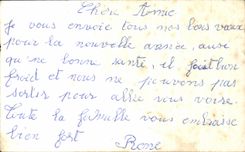 Chère Amie
Je vous envoie tous nos bons vœux
pour la nouvelle année, ausi
qu'une bonne santé, il fait bien
froid et nous ne pouvons pas
sortir pour aller vous voire.
Toute la famille vous embrasse
bien fort